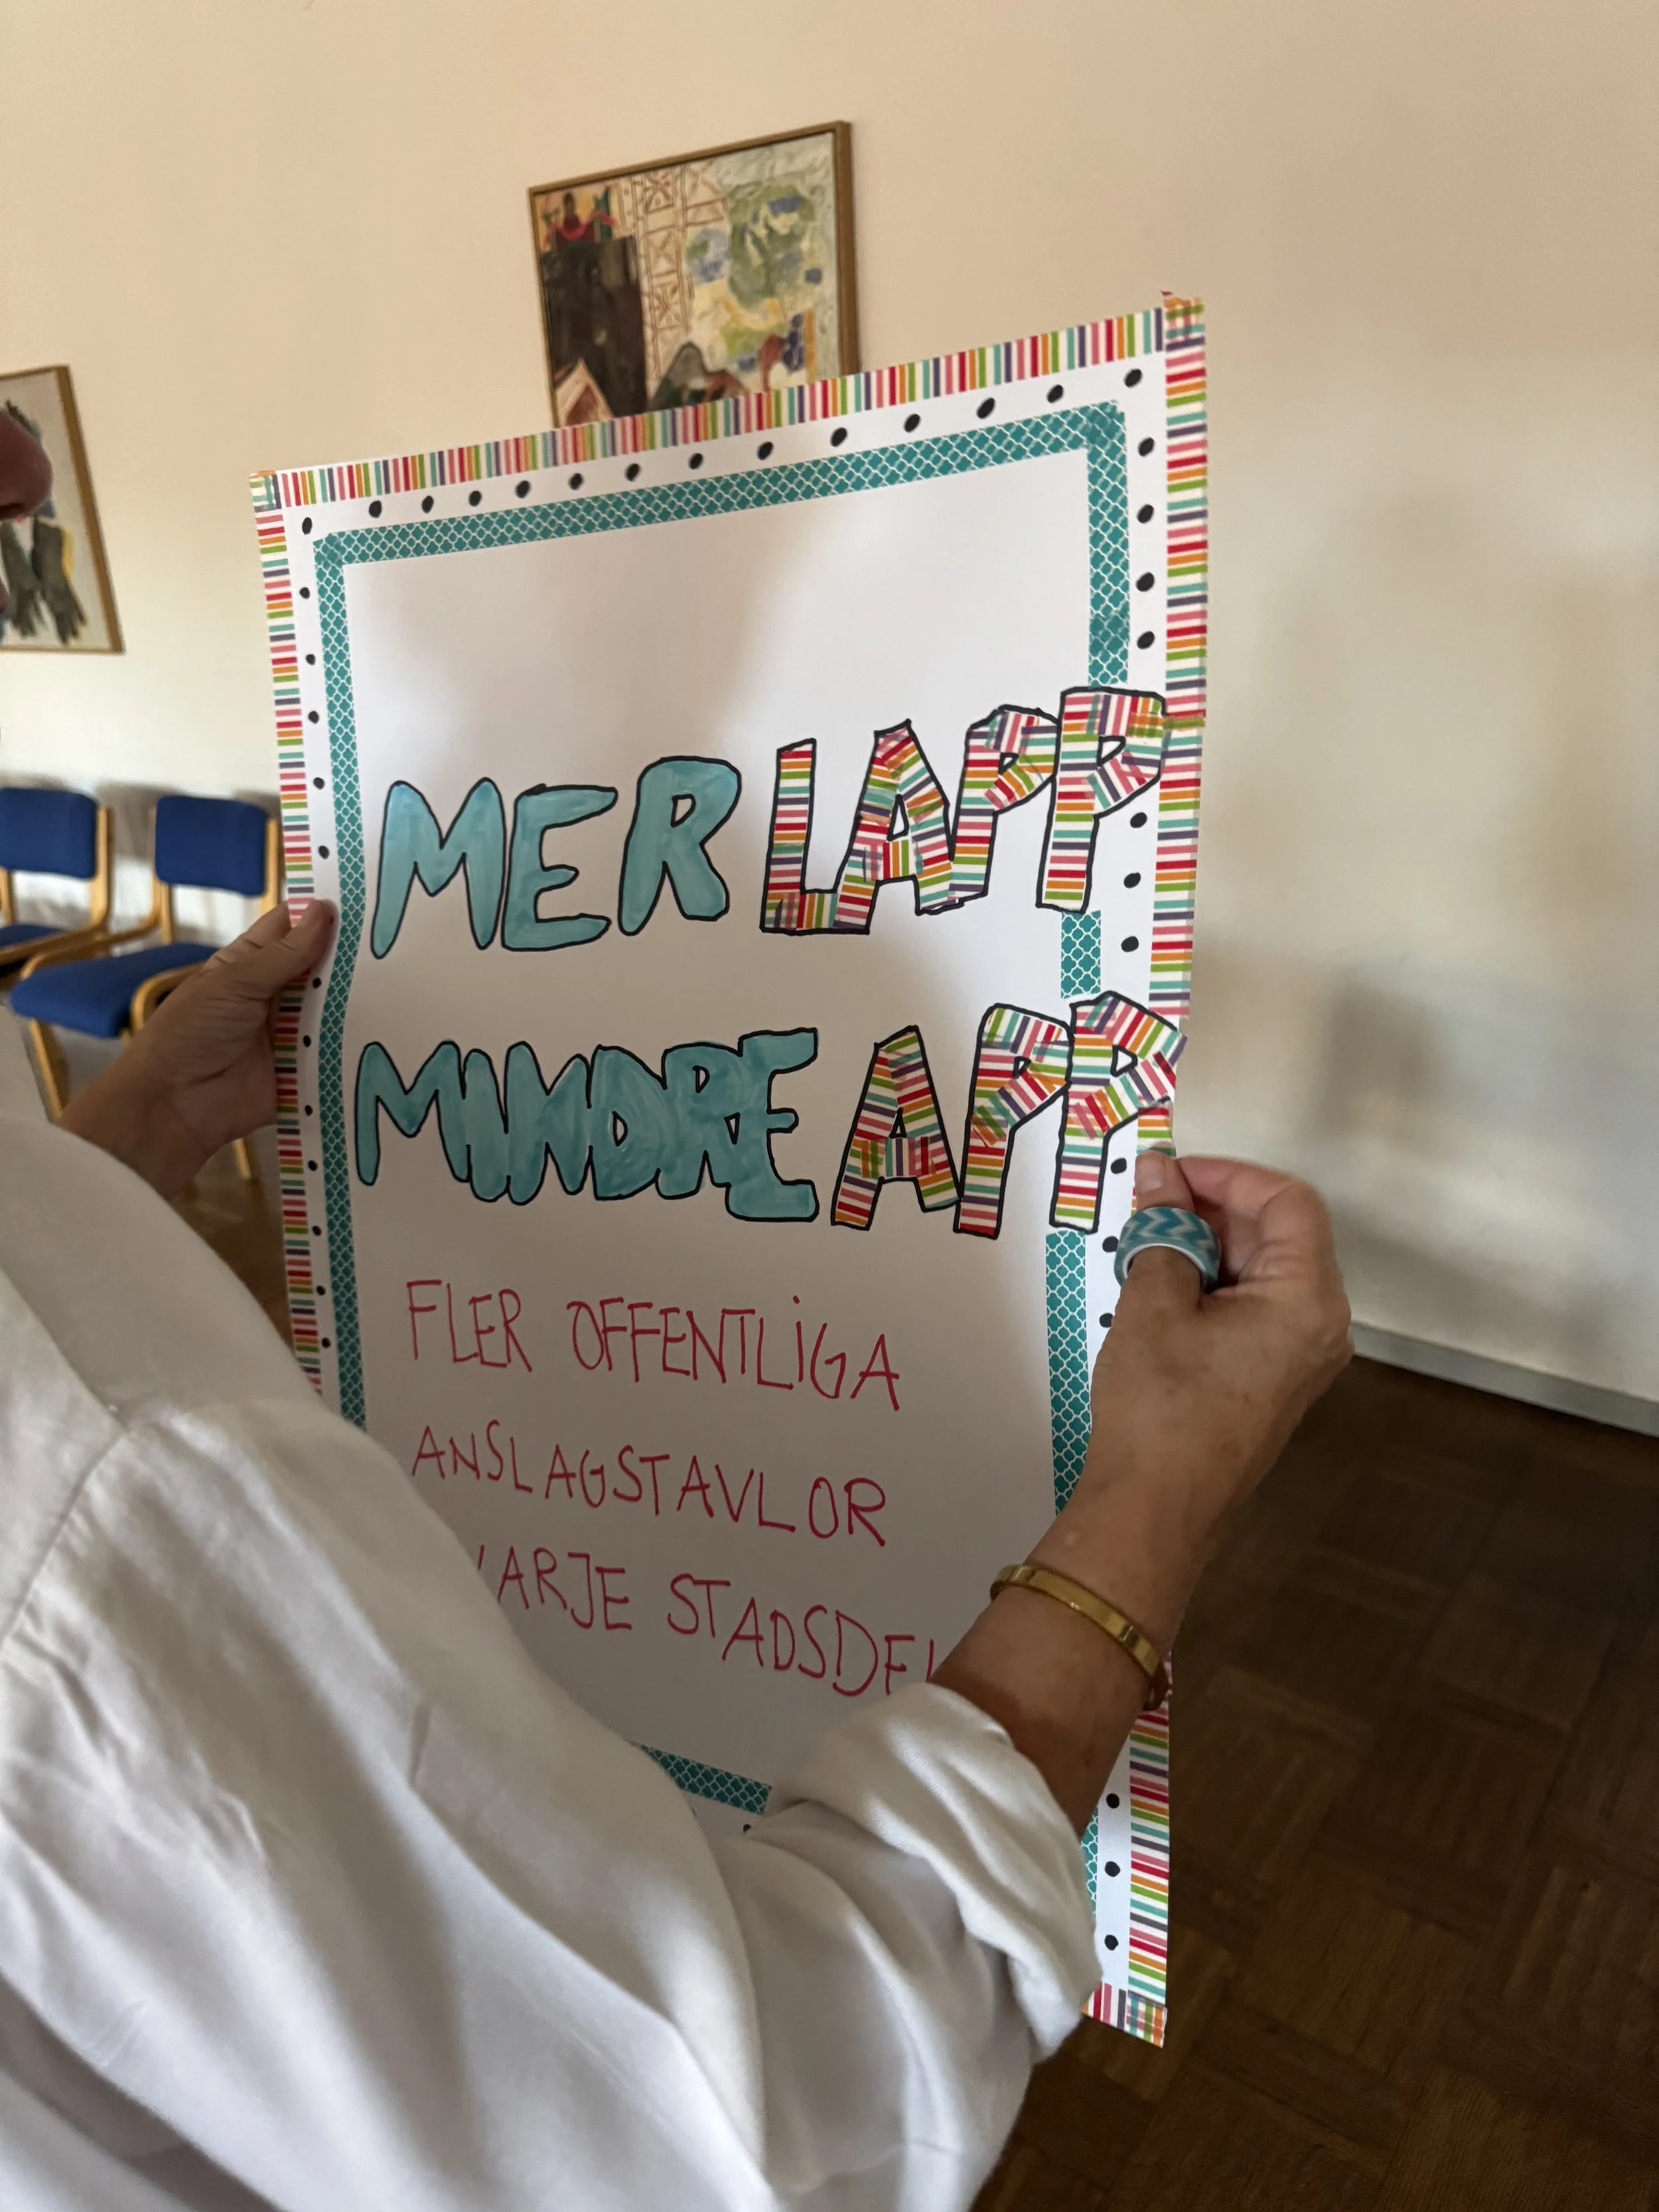 MER LAPP
MINDRE APP
FLER OFFENTLIGA
ANSLAGSTAVLOR
VARJE STADSDEL